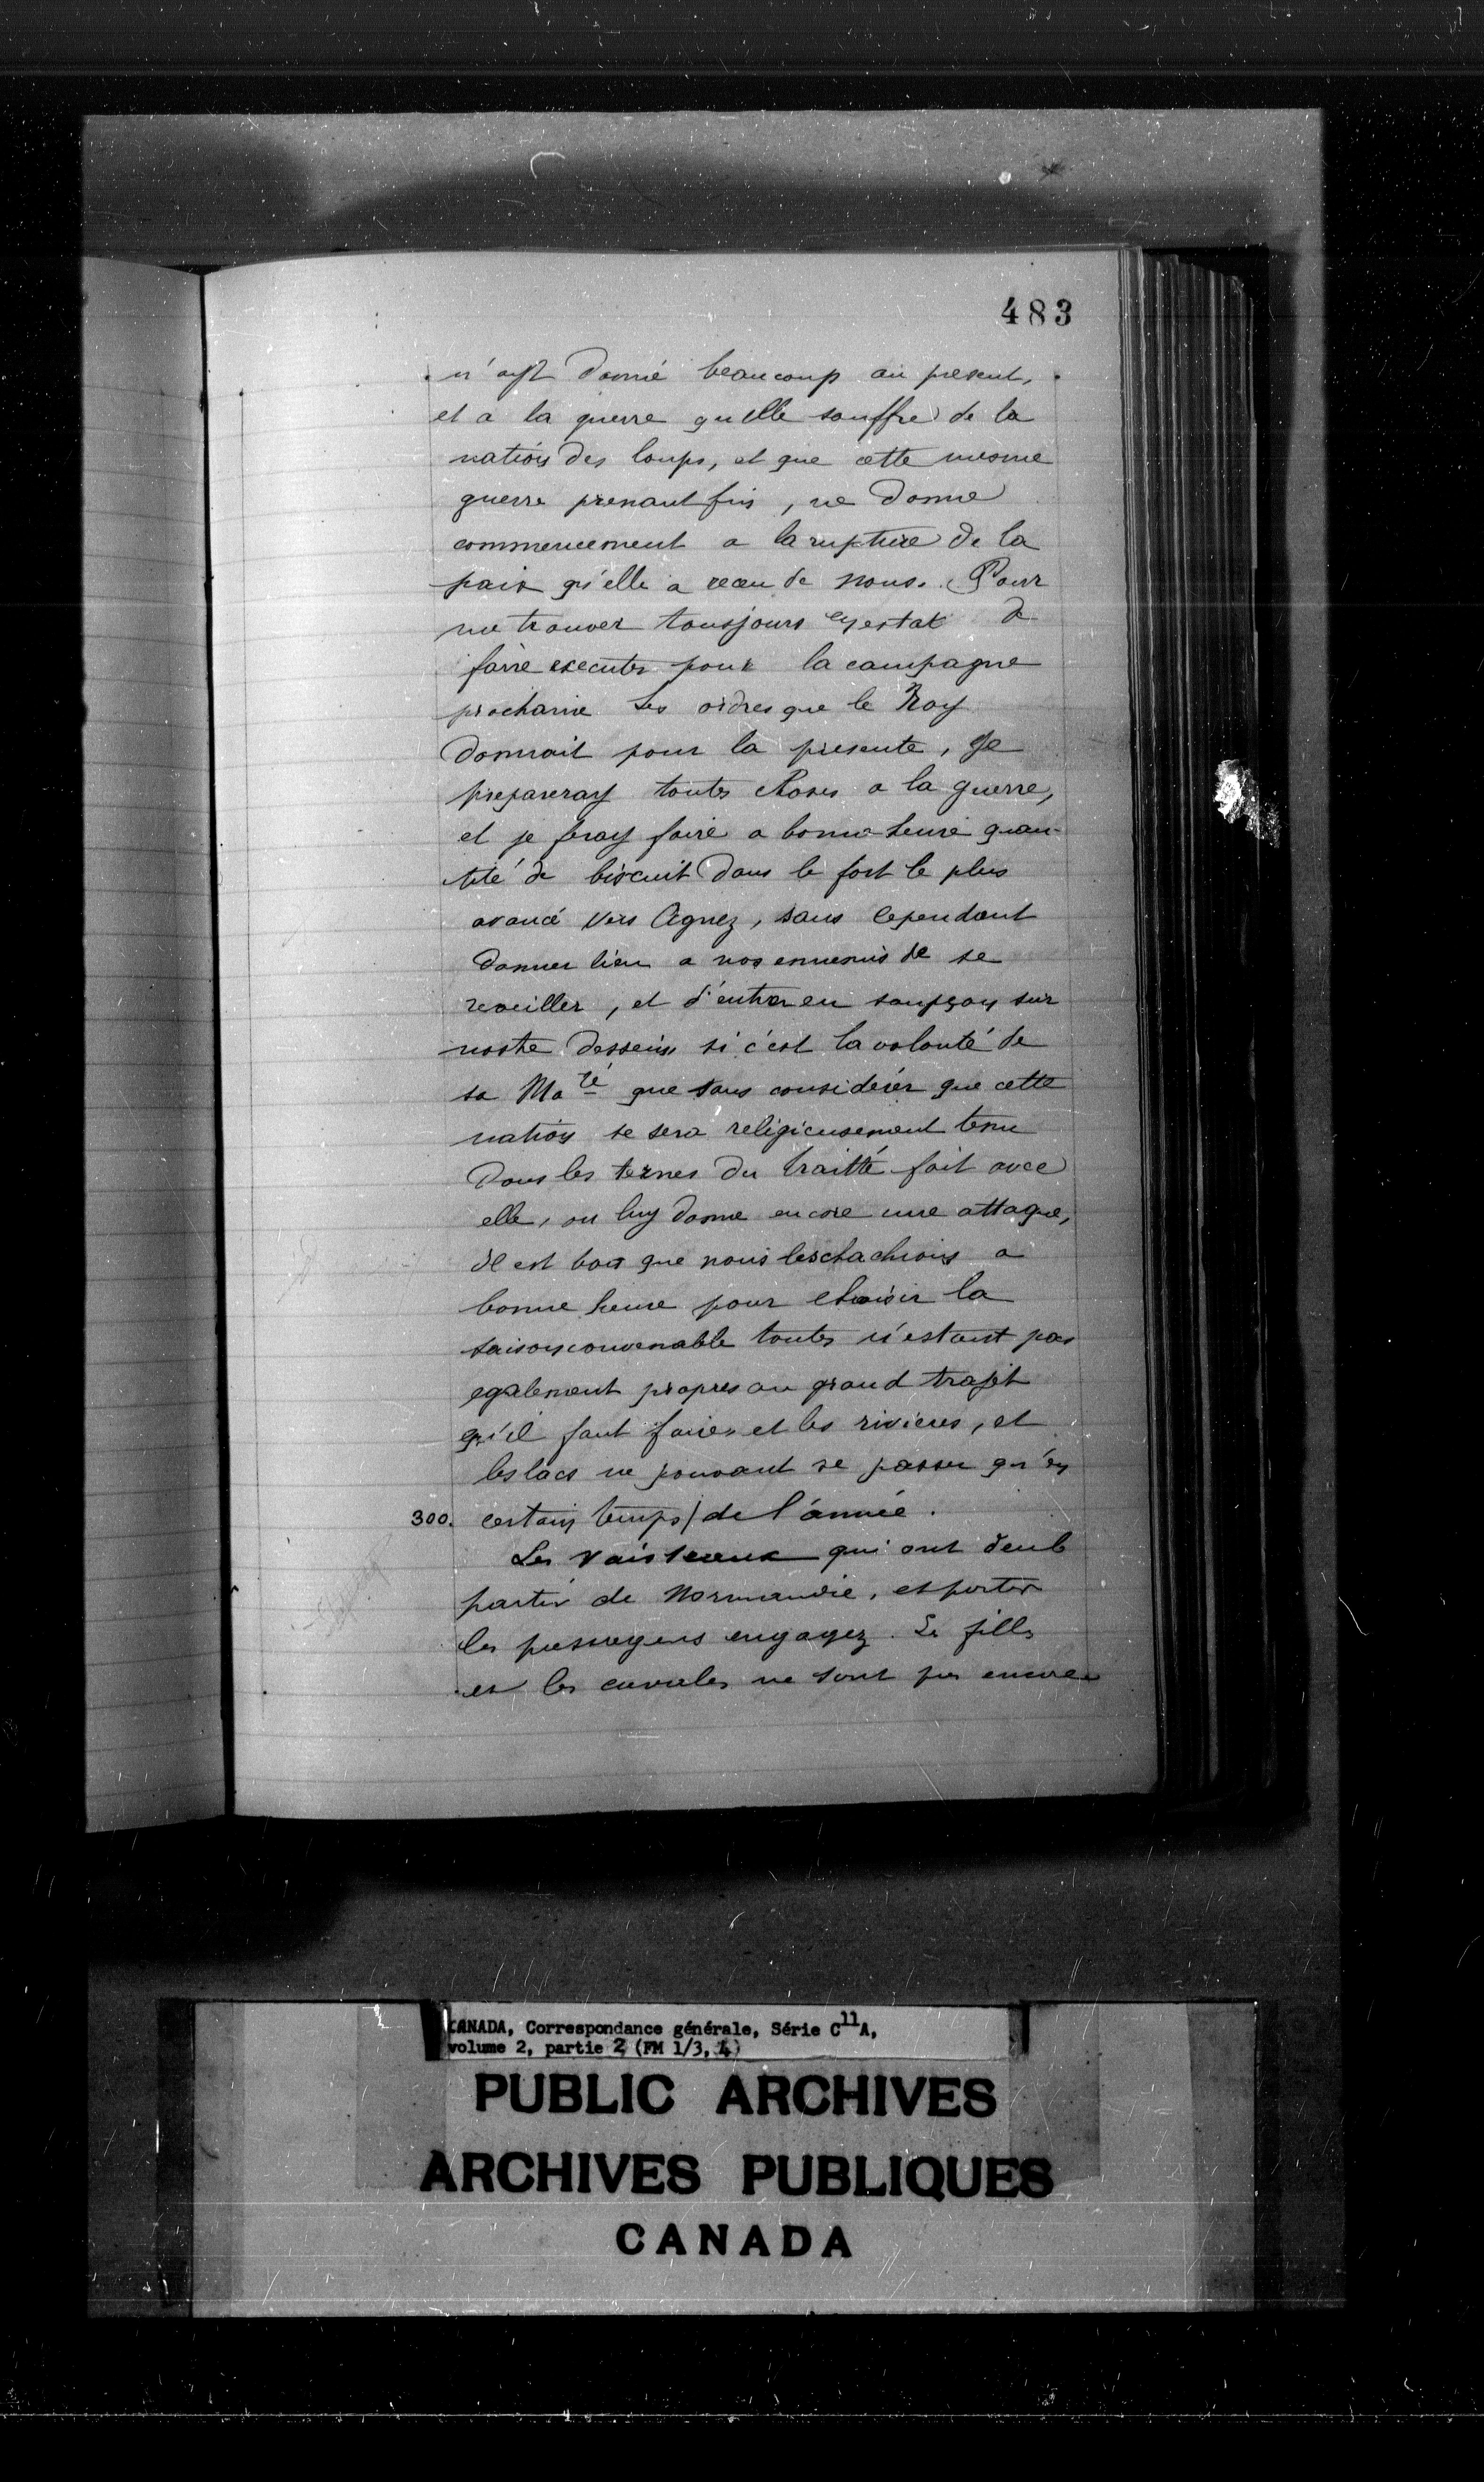 483
n'ayt donné beaucoup au present,
et a la guerre qu'elle souffre de la
nation des loups, et que cette mesme
guerre prenant fin, ne donne
commencement a la rupture de la
paix qu'elle a receu de nous. Pour
me trouver tousjours en estat de
faire executer pour la campagne
prochaine les ordres que le Roy
donnait pour la presente, Je
prepareray toutes choses a la guerre,
et je feray faire a bonne heure quan-
tité de biscuit dans le fort le plus
avancé vers Agnez, sans cependant
donner lieu a nos ennemis de se
reveiller, et d'entrer en soupçon sur
nostre dessein si c'est la volonté de
sa Ma té que sans considerer que cette
nation se sera religieusement tenu
dans les termes du traitté fait avec
elle, on luy donne encore une attaque,
il est bon que nous le sachions a
bonne heure pour choisir la
saison convenable toutes n'estant pas
egalement propres au grand trajet
qu'il faut faire et les rivieres, et
les lacs ne pouvant se passer qu'en
300. certain temps / de l'année.
Les vaisseaux qui ont deub
partir de Normandie, et porter
les passagers engagez. Les filles
et les cavales ne sont pas encore
CANADA, Correspondance générale, Série C11A,
volume 2, partie 2 (FM 1/3, 4)
PUBLIC ARCHIVES
ARCHIVES PUBLIQUES
CANADA